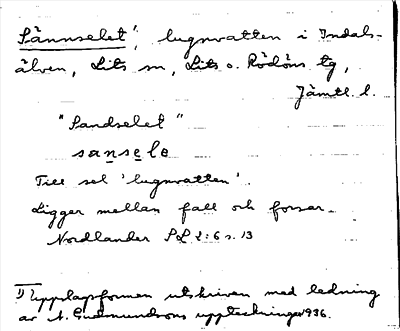 Sännselet¹⁾, lugnvatten i Indals-
älven, Lits sn, Lits o. Rödöns tg,
Jämtl. l.
"Sandselet"
sansele
Till sel 'lugnvatten'.
Ligger mellan fall och forsar.
Nordlander SL 2:6 s. 13
1) Uppslagsformen utskriven med ledning
av A. Gudmundsons uppteckningar 1936.